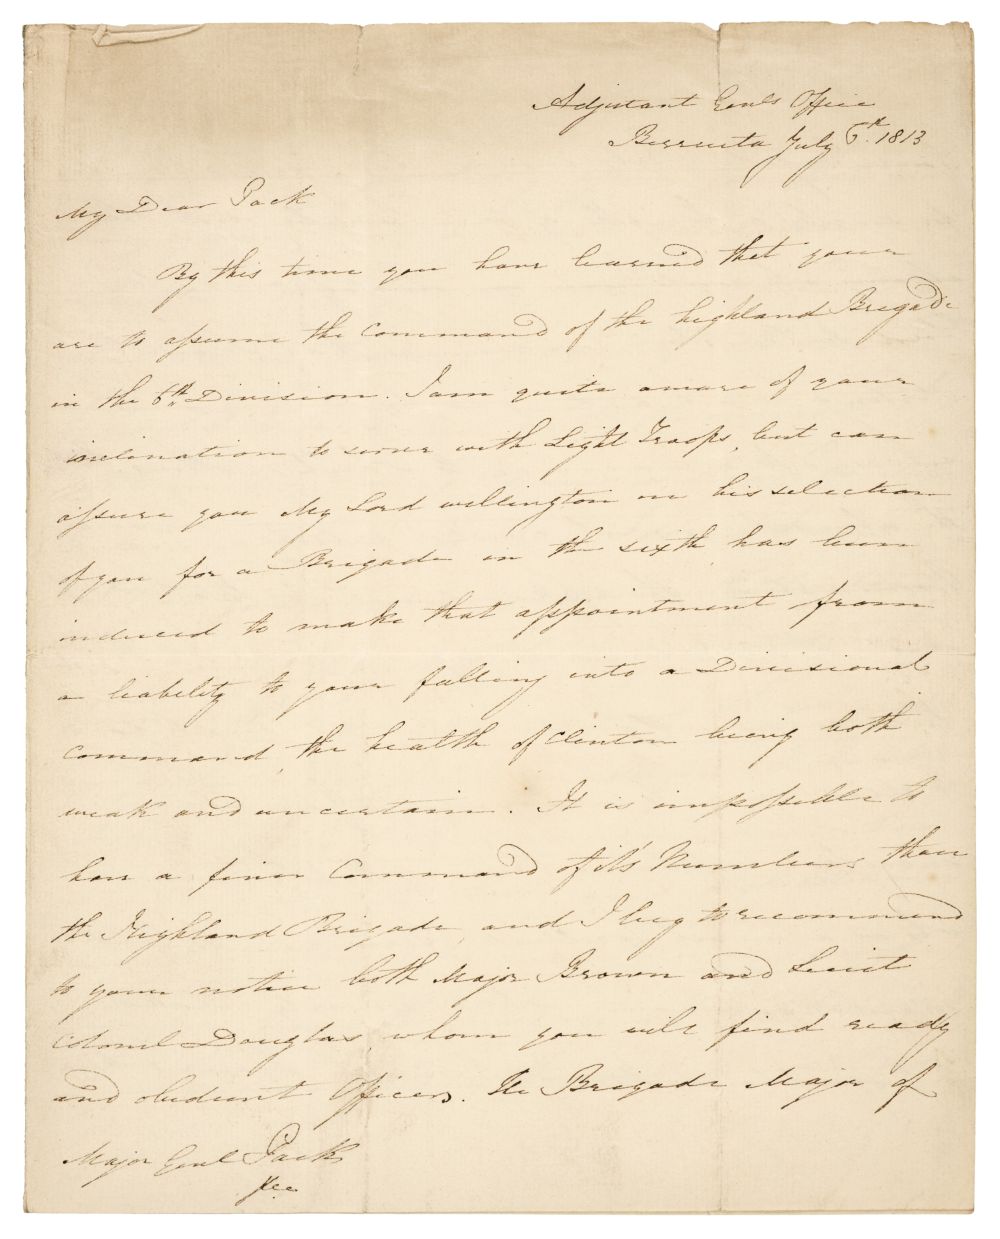 Adjutant Genls Office
Berrueta July 6th. 1813
My Dear Pack
By this time you have learned that your
are to assume the Command of the highland Brigade
in the 6th. Division. I am quite aware of your
inclination to serve with Light Troops, but can
assure you My Lord wellington in his selection
of you for a Brigade in the sixth has been
induced to make that appointment from
a liability to your falling into a Divisional
Command, the health of Clinton being both
weak and uncertain. It is impossible to
have a finer Command of it's Numbers than
the Highland Brigade, and I beg to recommend
to your notice both Major Brown and Leiut
Colonel Douglas, whom you will find ready
and obedient Officers. The Brigade Major of
Major Genl Pack
&c.c